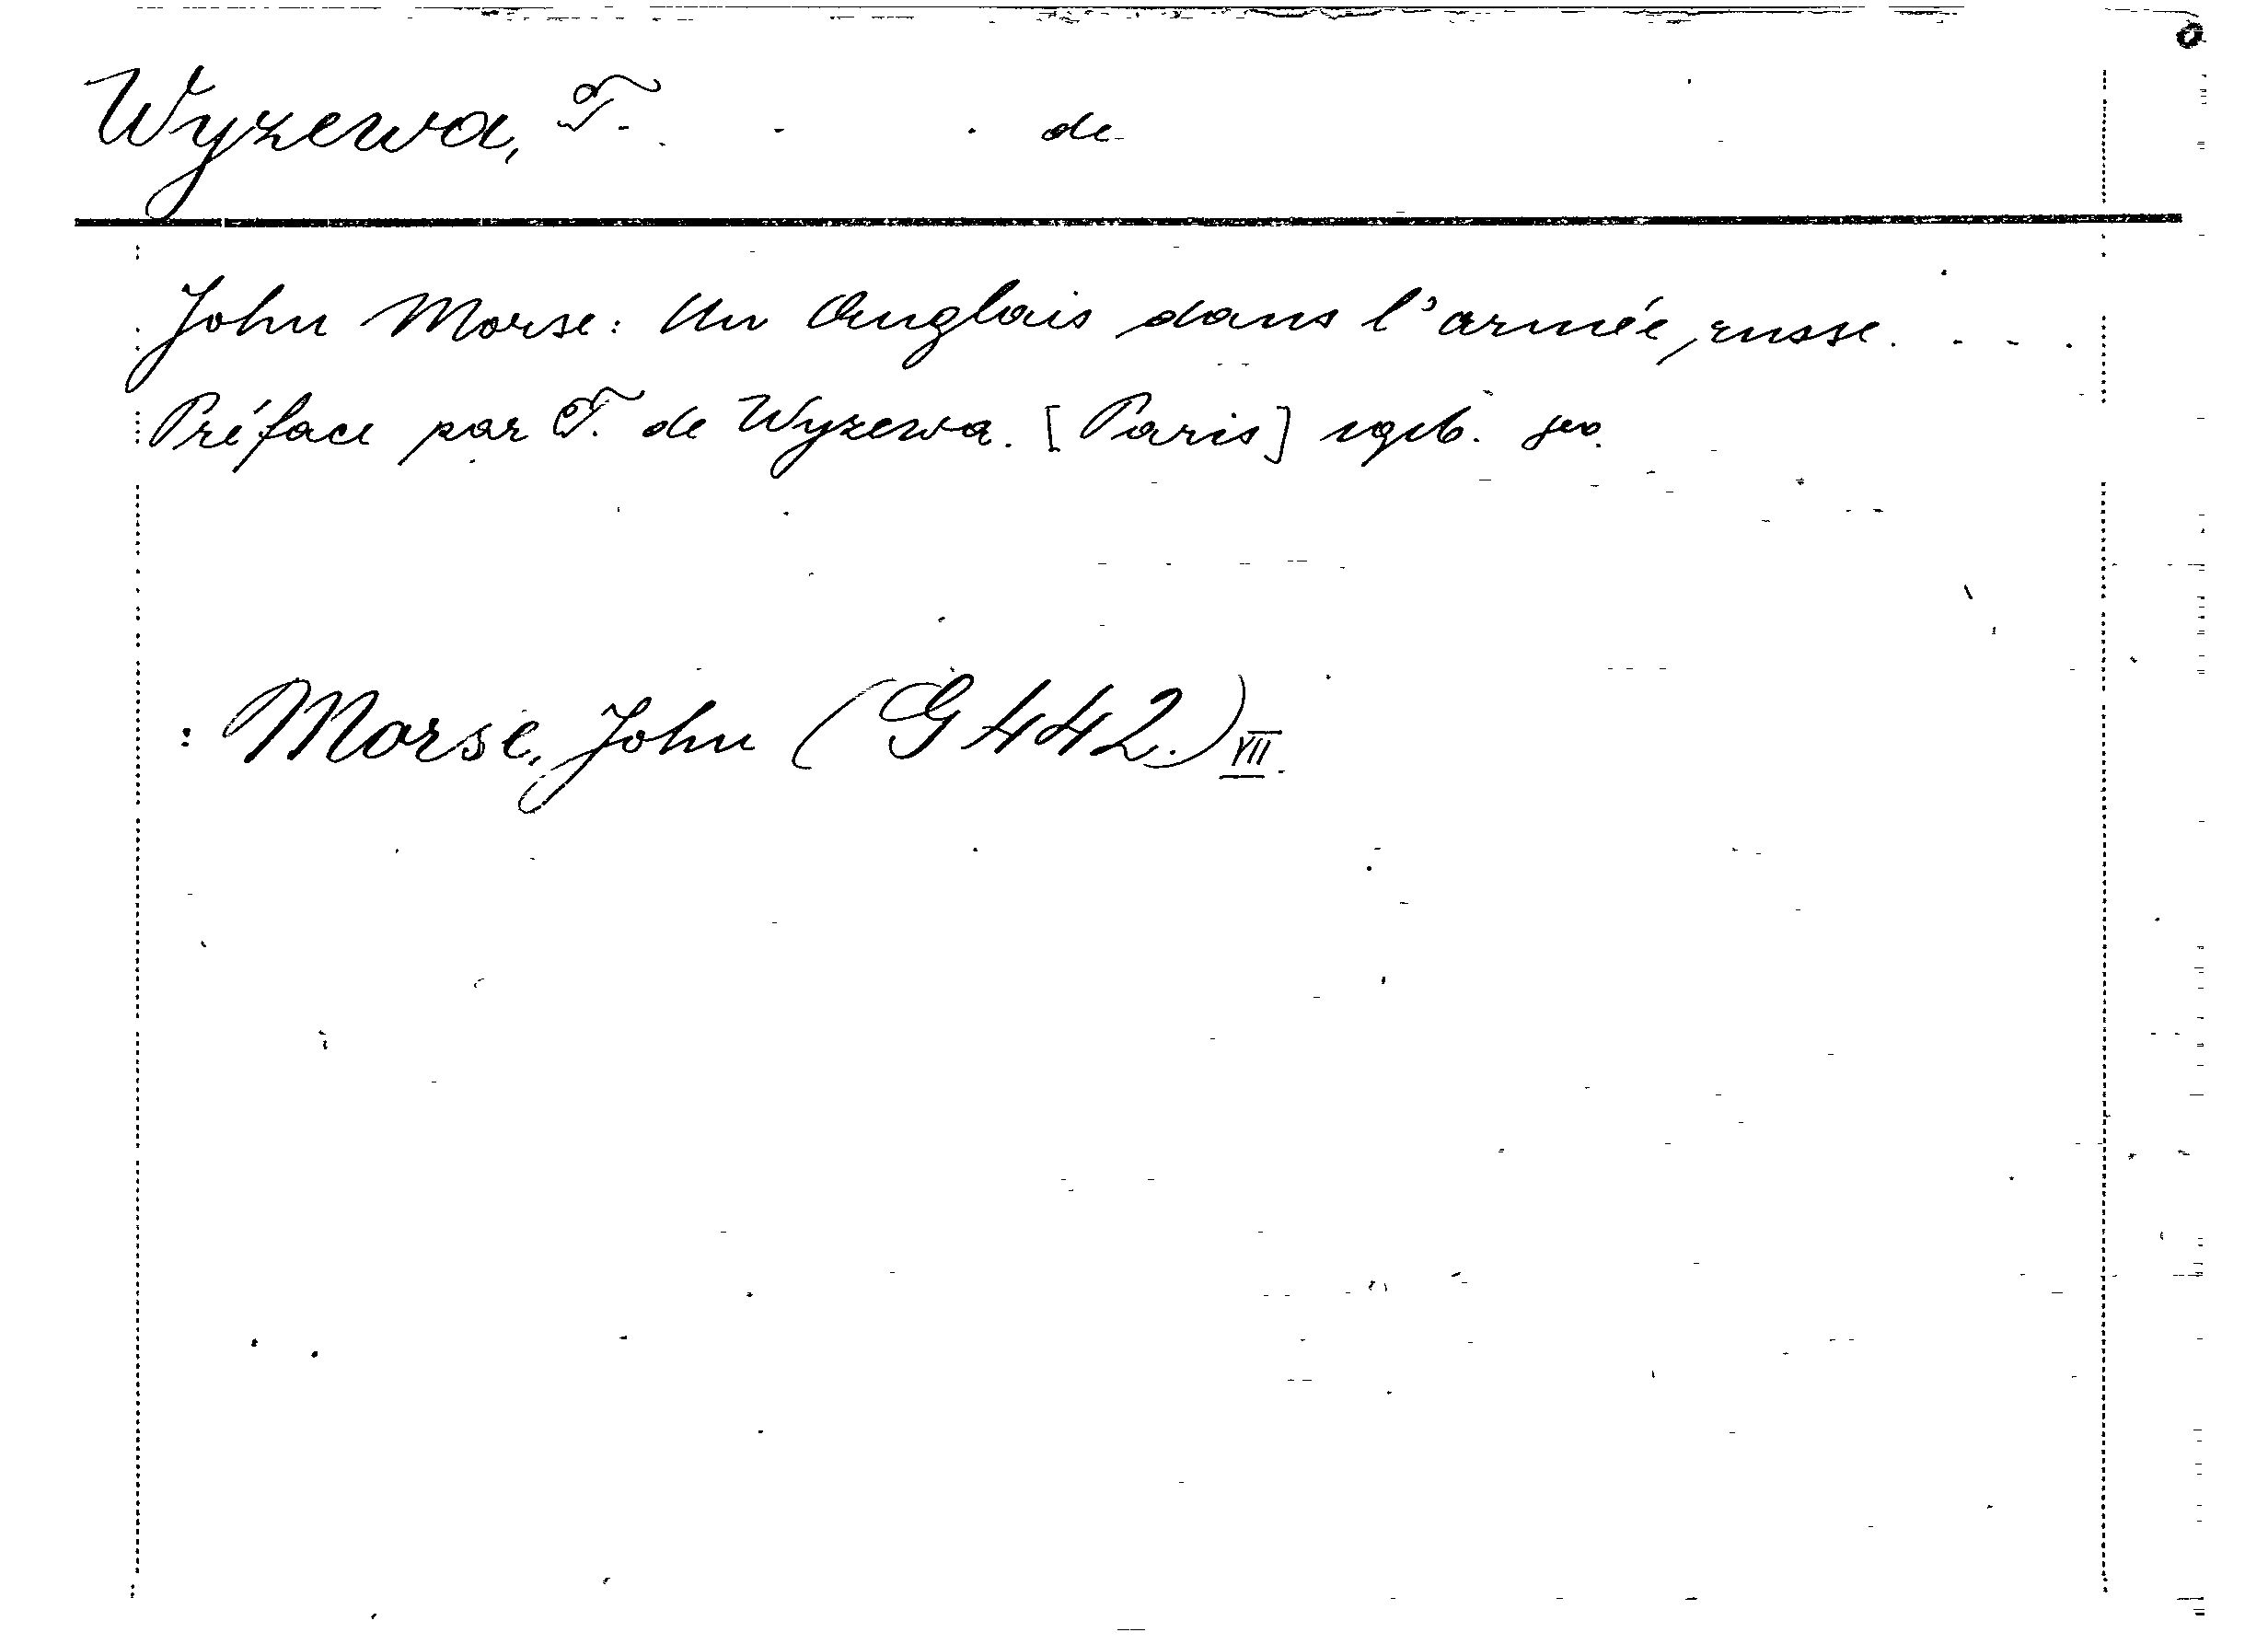 Wyzewa, T. . . . de
John Morse: Un Anglais dans l'armée russe. . . . .
Préface par T. de Wyzewa. [Paris] 1916. 8vo.
: Morse, John (G 442.) VII.